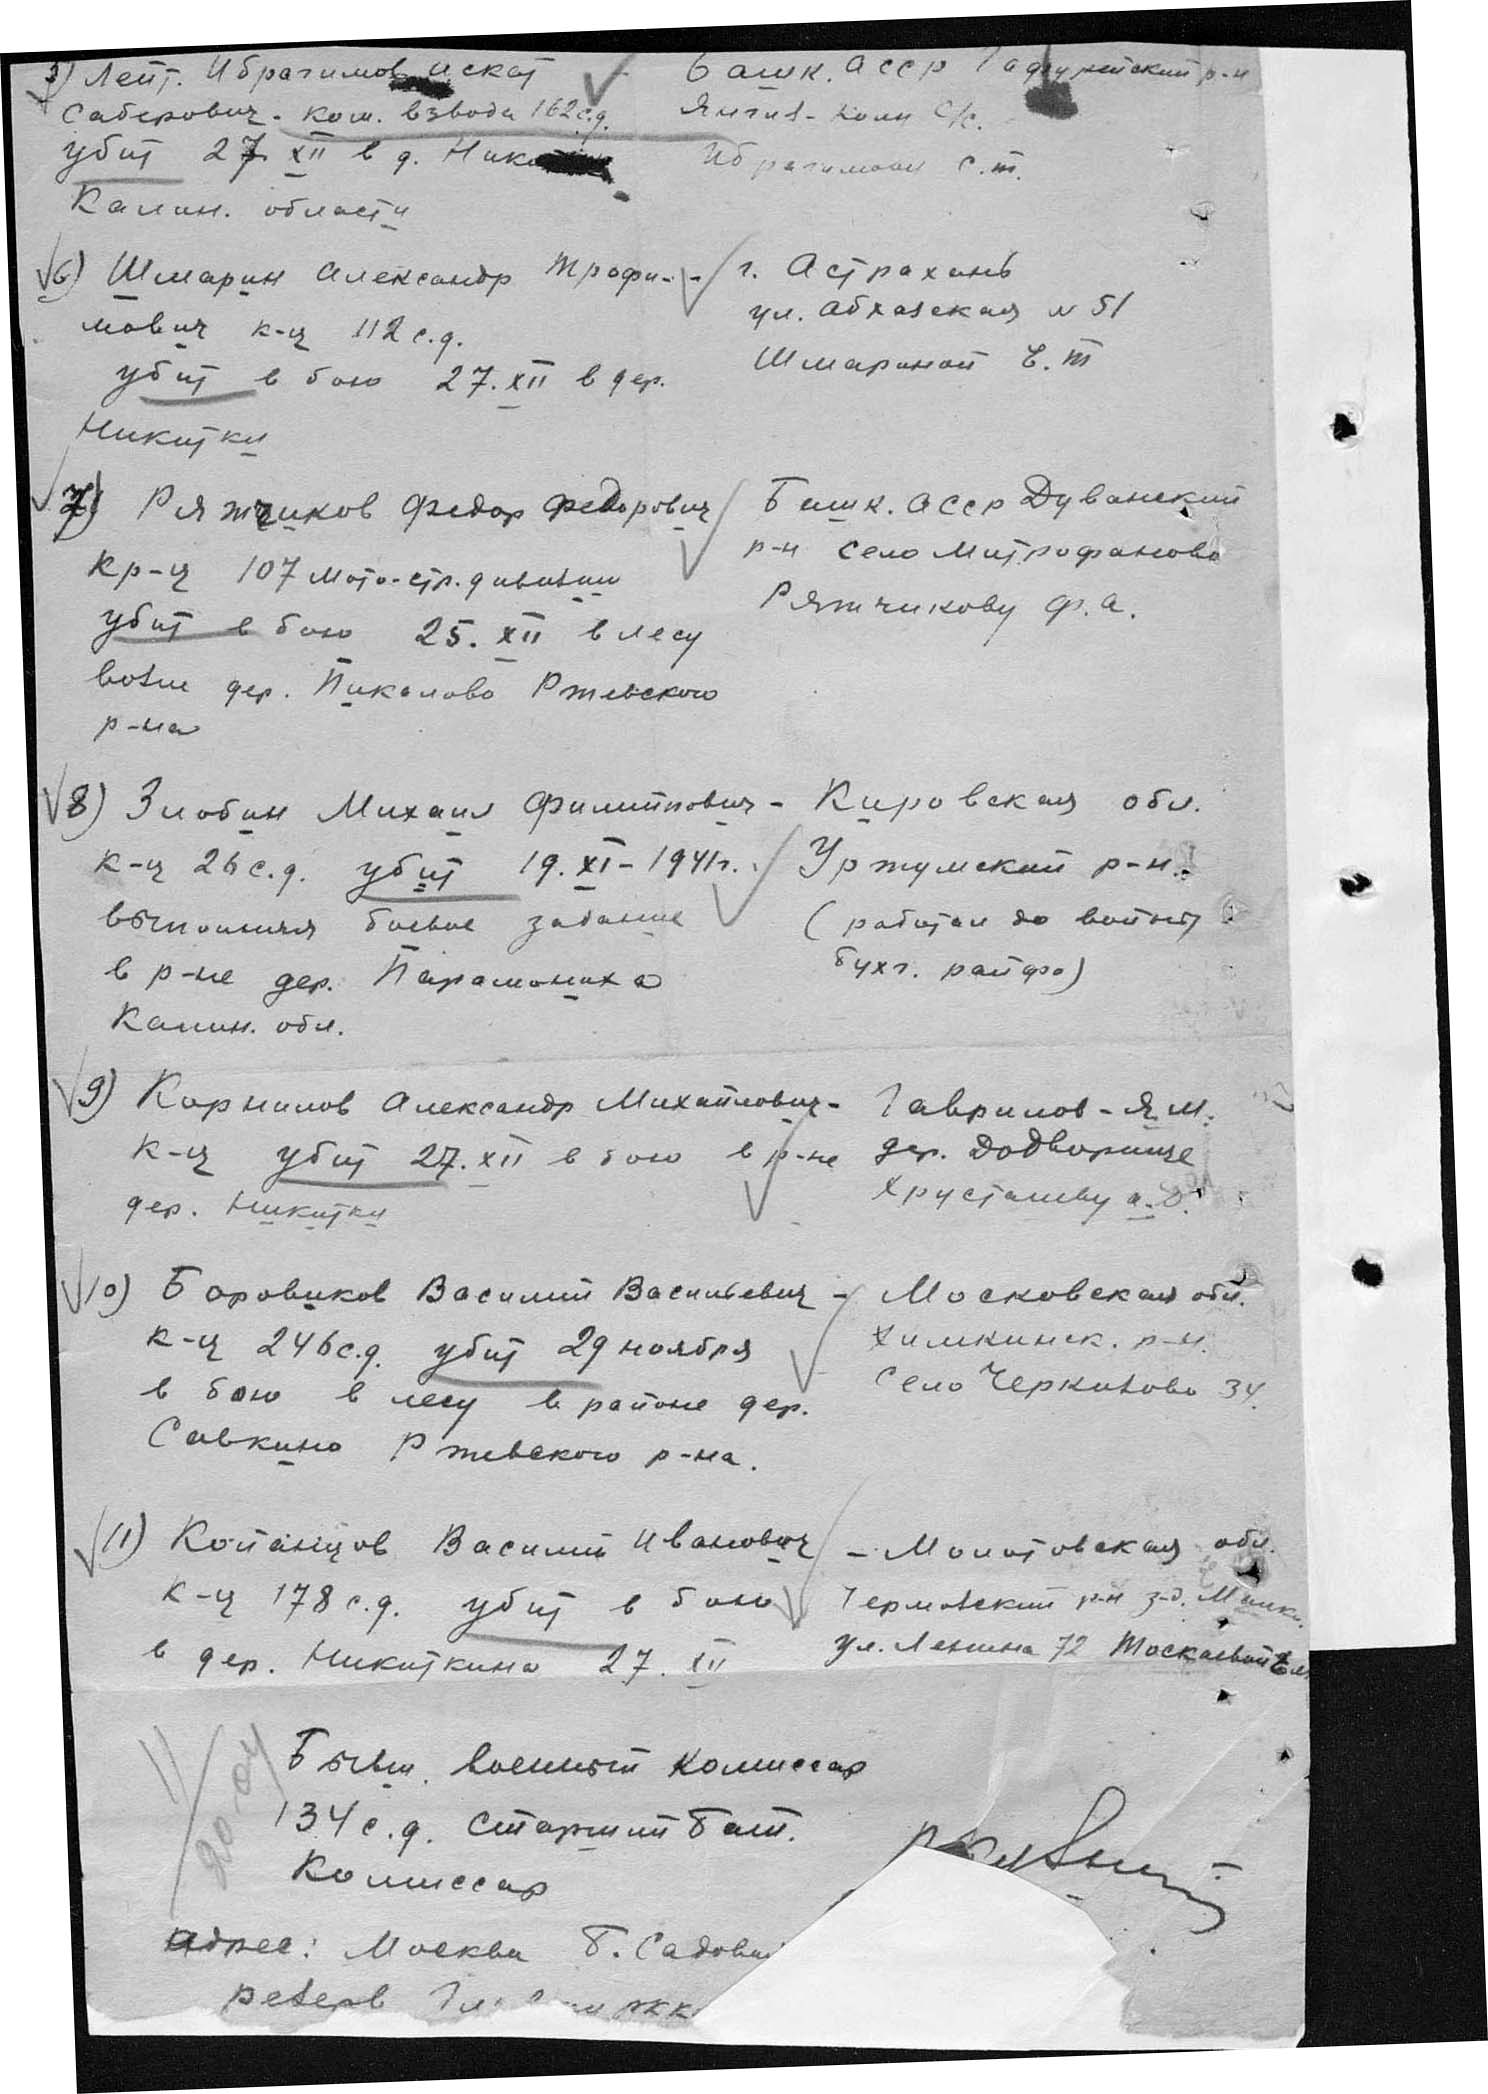 5) Лейт. Ибрагимов Искат
Саберович - ком. взвода 162 с.д.
убит 27. XII в д.
Калин. области
Башк. АССР Гафурийский р-н
с/с.
Ибрагимову С.Т.
6) Шмарин Александр Трофи-
мович к-ц 112 с.д.
убит в бою 27. XII в дер.
Никитки
г. Астрахань
ул. Абхазская N 51
Шмариной Е.Т
7) Ряжчиков Федор Федорович
кр-ц 107 мото-стр. дивизии
убит в бою 25. XII в лесу
возле дер. Пикалово Ржевского
р-на
Башк. АССР Дуванский
р-н село Митрофаново
Ряжчикову Ф.А.
8) Злобин Михаил Филиппович -
к-ц 26 с.д. убит 19. XI - 1941 г.
выполняя боевое задание
в р-не дер. Парамониха
Калин. обл.
Кировская обл.
Уржумский р-н.
(работал до войны
бухг. райфо)
9) Корнилов Александр Михайлович -
к-ц убит 27. XII в бою в р-не
дер. Никитки
Гаврилов - Ям.
дер. Додворище
Хрусталеву А.Д.
10) Боровиков Василий Васильевич -
к-ц 246 с.д. убит 29 ноября
в бою в лесу в районе дер.
Савкино Ржевского р-на.
Московская обл.
Химкинск. р-н.
село Черкизово 34.
11) Копанцов Василий Иванович
к-ц 178 с.д. убит в бою
в дер. Никиткино 27. XII
- Молотовская обл.
Чермозский р-н з-д.
ул. Ленина 72
11
20.04
Бывш. военный комиссар
134 с.д. Старший бат.
Комиссар
Адрес: Москва Б. Садовая
резерв